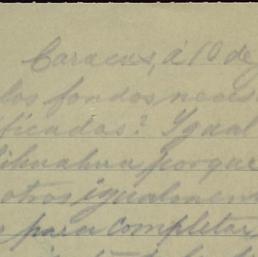 Caracas, á 10 de
los fondos neces
ficadas? Igual
Chihuahua, porque
otros igualmen
para completar